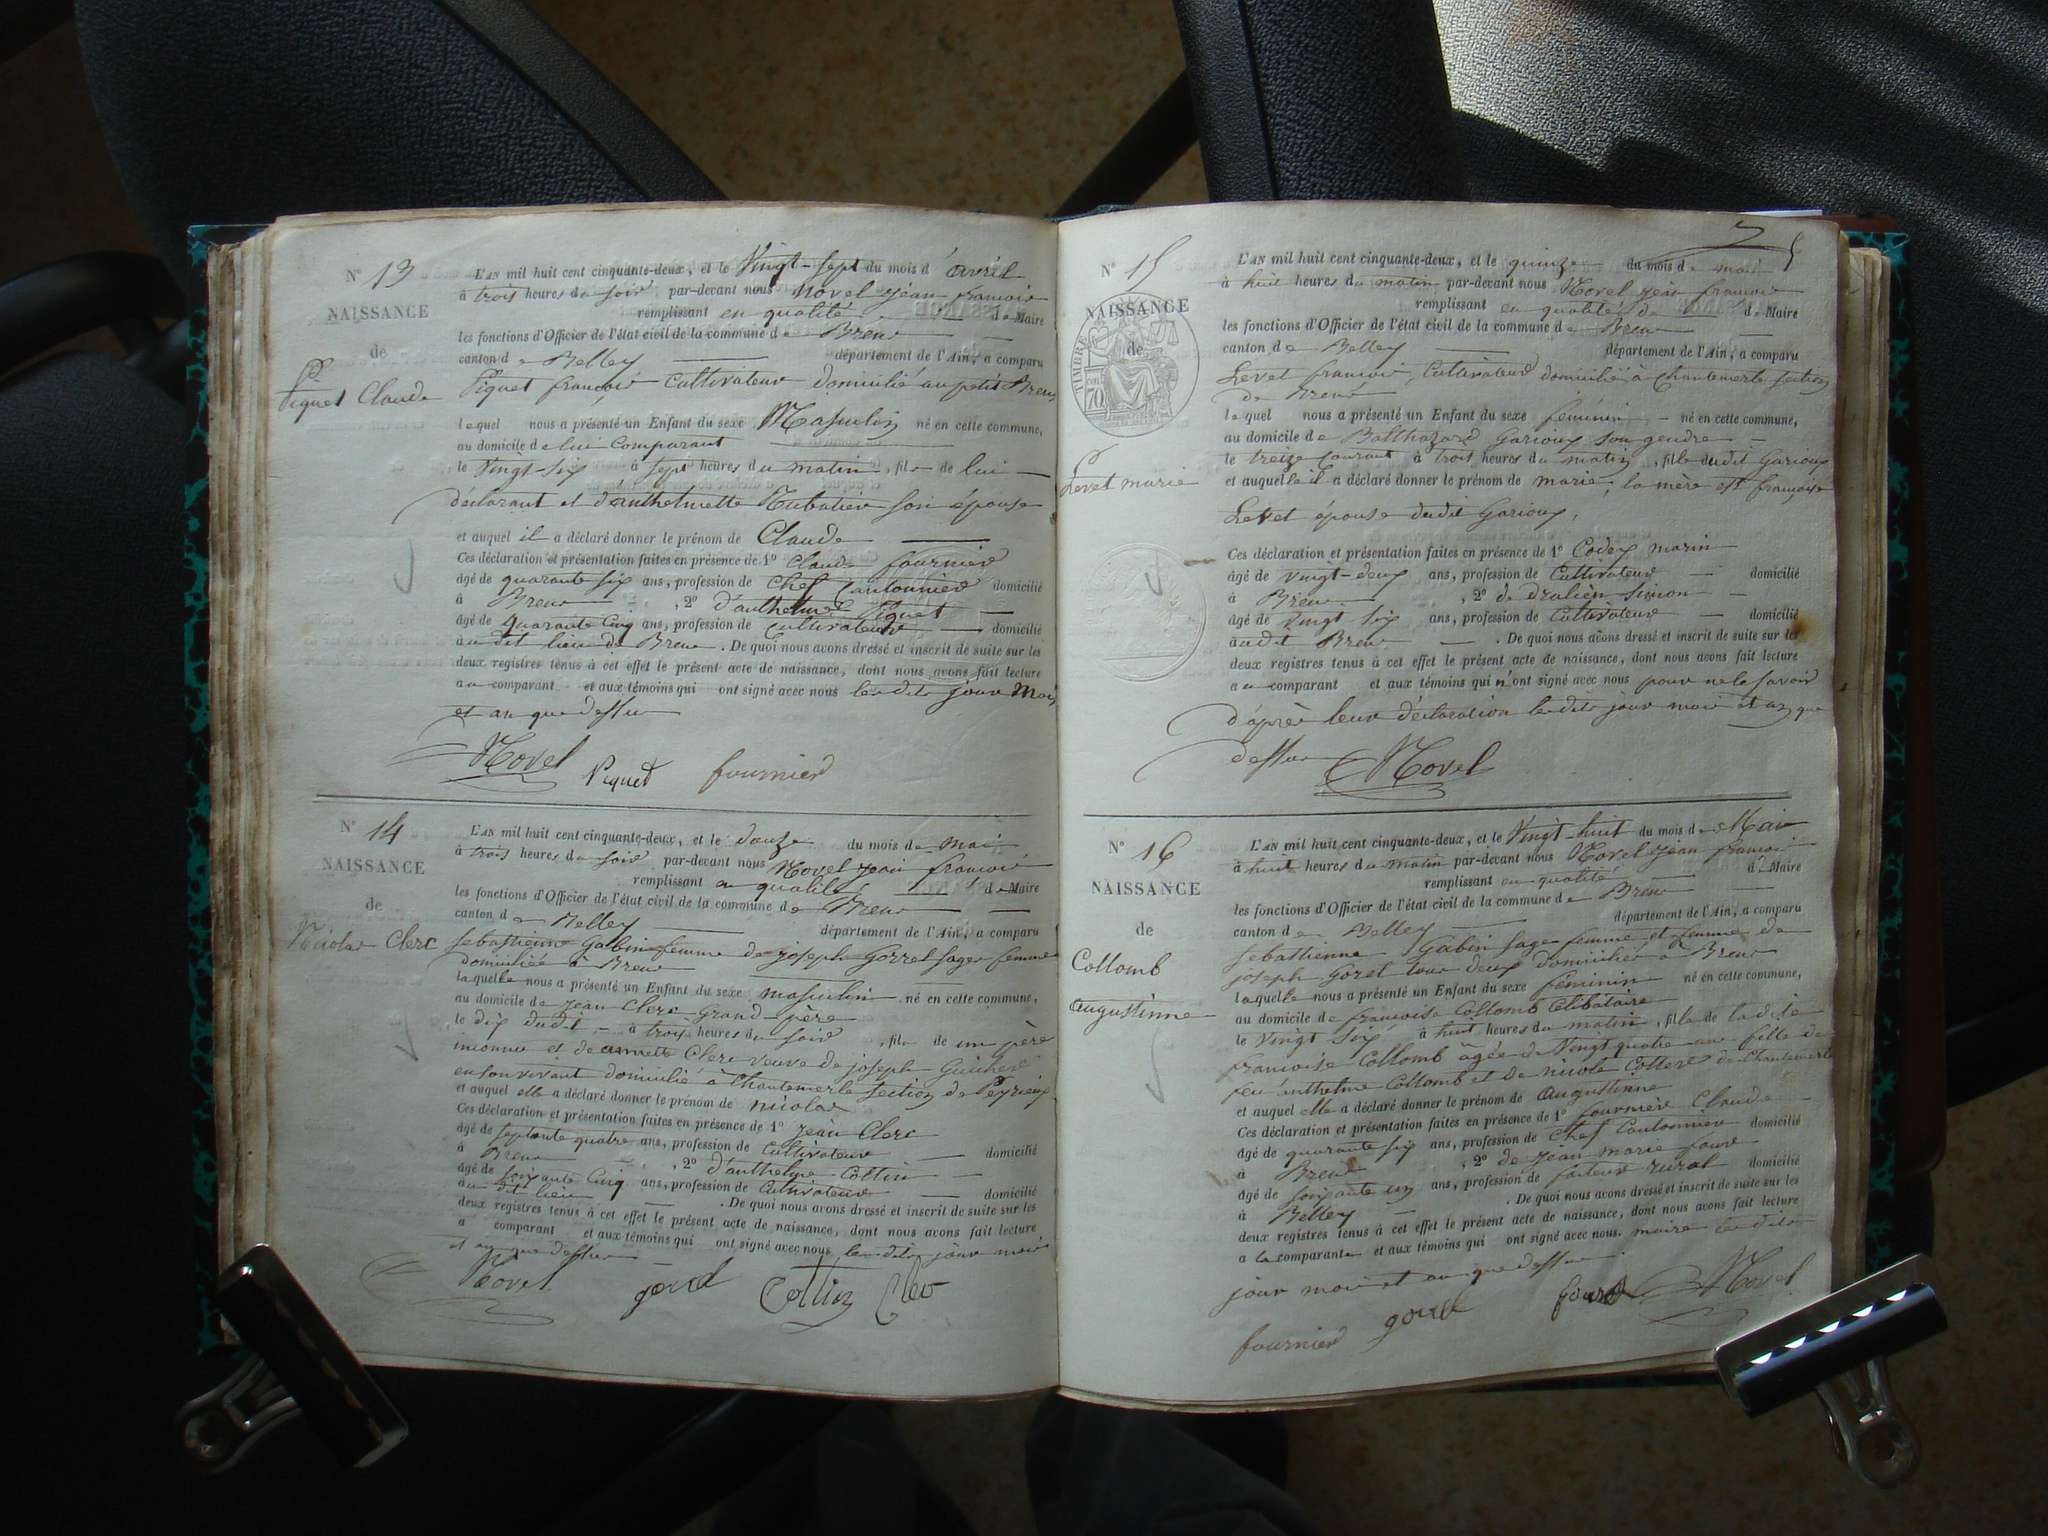 N° 13
NAISSANCE
de
Piquet Claude
L'AN mil huit cent cinquante-deux, et le Vingt-Sept du mois d'avril
à trois heures du Soir par-devant nous Novel jean françois
remplissant en qualité de Maire
les fonctions d'Officier de l'état civil de la commune de Brens
canton de Belley département de l'Ain, a comparu
Piquet françois Cultivateur domicilié au petit Brens
lequel nous a présenté un Enfant du sexe Masculin né en cette commune,
au domicile de lui Comparant
le Vingt-Six à Sept heures du matin, fils de lui
déclarant et d'anthelmette Rubatier son épouse
et auquel il a déclaré donner le prénom de Claude
Ces déclaration et présentation faites en présence de 1° Claude fournier
âgé de quarante six ans, profession de Chef Cantonnier domicilié
à Brens, 2° d'anthelme Piquet
âgé de Quarante Cinq ans, profession de Cultivateur domicilié
au dit lieu de Brens. De quoi nous avons dressé et inscrit de suite sur les
deux registres tenus à cet effet le présent acte de naissance, dont nous avons fait lecture
au comparant et aux témoins qui ont signé avec nous les dits jour Mois
et an que dessus
Novel Piquet fournier
N° 14
NAISSANCE
de
Nicolas Clerc
L'AN mil huit cent cinquante-deux, et le douze du mois de mai
à trois heures du Soir par-devant nous Novel jean françois
remplissant en qualité de Maire
les fonctions d'Officier de l'état civil de la commune de Brens
canton de Belley département de l'Ain, a comparu
Sebastienne Gabin femme de joseph Gorrel sage femme
domiciliée à Brens
laquelle nous a présenté un Enfant du sexe masculin né en cette commune,
au domicile de jean Clerc Grand-père
le dix dudit à trois heures du Soir, fils de un père
inconnu et de annette Clerc veuve de joseph Guicherd
en son vivant domicilié à Chantemerle section de Peyrieu
et auquel elle a déclaré donner le prénom de nicolas
Ces déclaration et présentation faites en présence de 1° jean Clerc
âgé de septante quatre ans, profession de Cultivateur domicilié
à Brens, 2° d'anthelme Collin
âgé de soixante Cinq ans, profession de Cultivateur domicilié
au dit lieu. De quoi nous avons dressé et inscrit de suite sur les
deux registres tenus à cet effet le présent acte de naissance, dont nous avons fait lecture
a comparant et aux témoins qui ont signé avec nous les dits jour mois
et an que dessus
Novel gorrel Collin Clerc
N° 15
NAISSANCE
de
TIMBRE
70
Levet marie
L'AN mil huit cent cinquante-deux, et le quinze du mois de mai
à huit heures du matin par-devant nous Novel jean françois
remplissant en qualité de Maire
les fonctions d'Officier de l'état civil de la commune de Brens
canton de Belley département de l'Ain, a comparu
Levet françois, Cultivateur domicilié à Chantemerle section
de Brens
lequel nous a présenté un Enfant du sexe féminin né en cette commune,
au domicile de Balthazard Garioux son gendre
le treize courant à trois heures du matin, fille dudit Garioux
et auquelle il a déclaré donner le prénom de marie, la mère est françoise
Levet épouse dudit Garioux,
Ces déclaration et présentation faites en présence de 1° Codex marin
âgé de vingt-deux ans, profession de Cultivateur domicilié
à Brens, 2° de dralien simon
âgé de Vingt Six ans, profession de Cultivateur domicilié
audit Brens. De quoi nous avons dressé et inscrit de suite sur les
deux registres tenus à cet effet le présent acte de naissance, dont nous avons fait lecture
au comparant et aux témoins qui n'ont signé avec nous pour ne le savoir
d'après leur déclaration les dits jour mois et an que
dessus Novel
N° 16
NAISSANCE
de
Collomb
augustinne
L'AN mil huit cent cinquante-deux, et le Vingt-huit du mois de Mai
à huit heures du matin par-devant nous Novel jean françois
remplissant en qualité de Maire
les fonctions d'Officier de l'état civil de la commune de Brens
canton de Belley département de l'Ain, a comparu
Sebastienne Gabin sage femme et femme de
joseph Gorel tous deux domiciliés à Brens
laquelle nous a présenté un Enfant du sexe féminin né en cette commune,
au domicile de françoise Collomb Célibataire
le Vingt Six à huit heures du matin, fille de la dite
françoise Collomb âgée de Vingt quatre ans fille de
feu anthelme Collomb et de nicole Collet de Chantemerle
et auquel elle a déclaré donner le prénom de augustinne
Ces déclaration et présentation faites en présence de 1° fournier Claude
âgé de quarante six ans, profession de Chef Cantonnier domicilié
à Brens, 2° de jean marie
âgé de soixante un ans, profession de facteur rural domicilié
à Belley. De quoi nous avons dressé et inscrit de suite sur les
deux registres tenus à cet effet le présent acte de naissance, dont nous avons fait lecture
a la comparante et aux témoins qui ont signé avec nous maire les dits
jour mois et an que dessus
fournier gorrel Novel